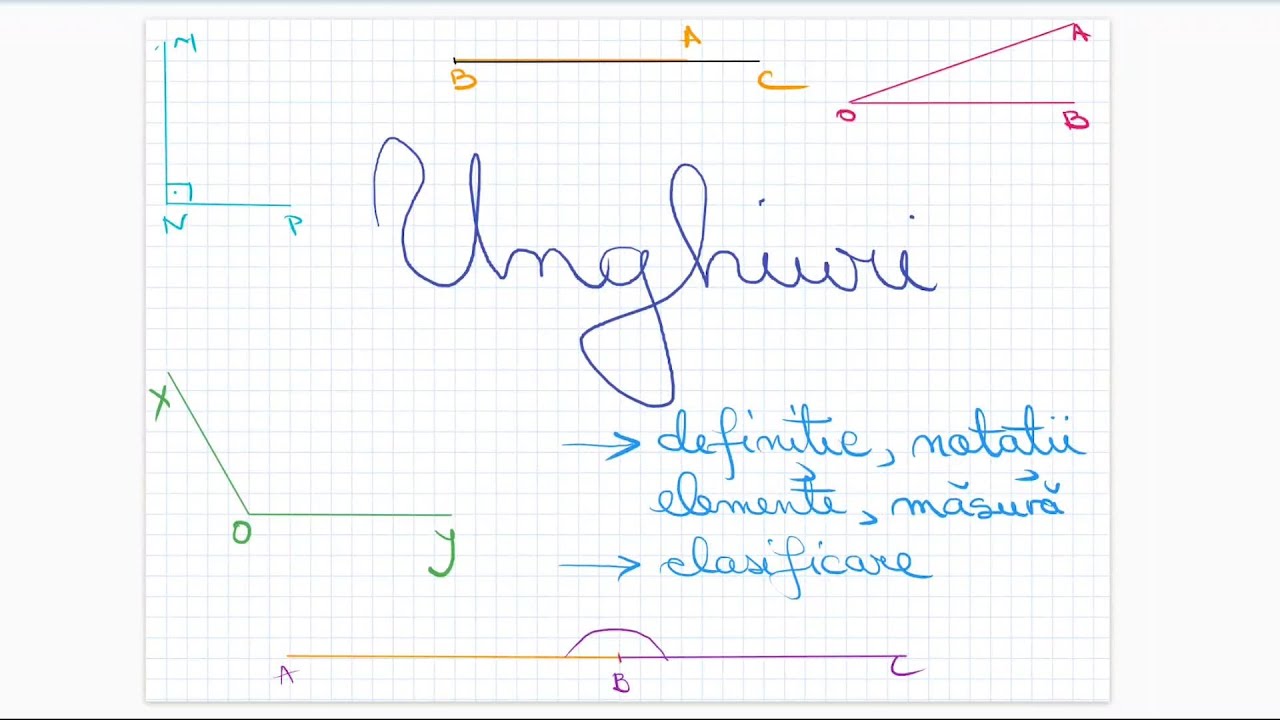 M
A
A
B
C
O
B
N
P
Unghiuri
X
→ definiție, notații
elemente, măsură
O
y
→ clasificare
A
B
C